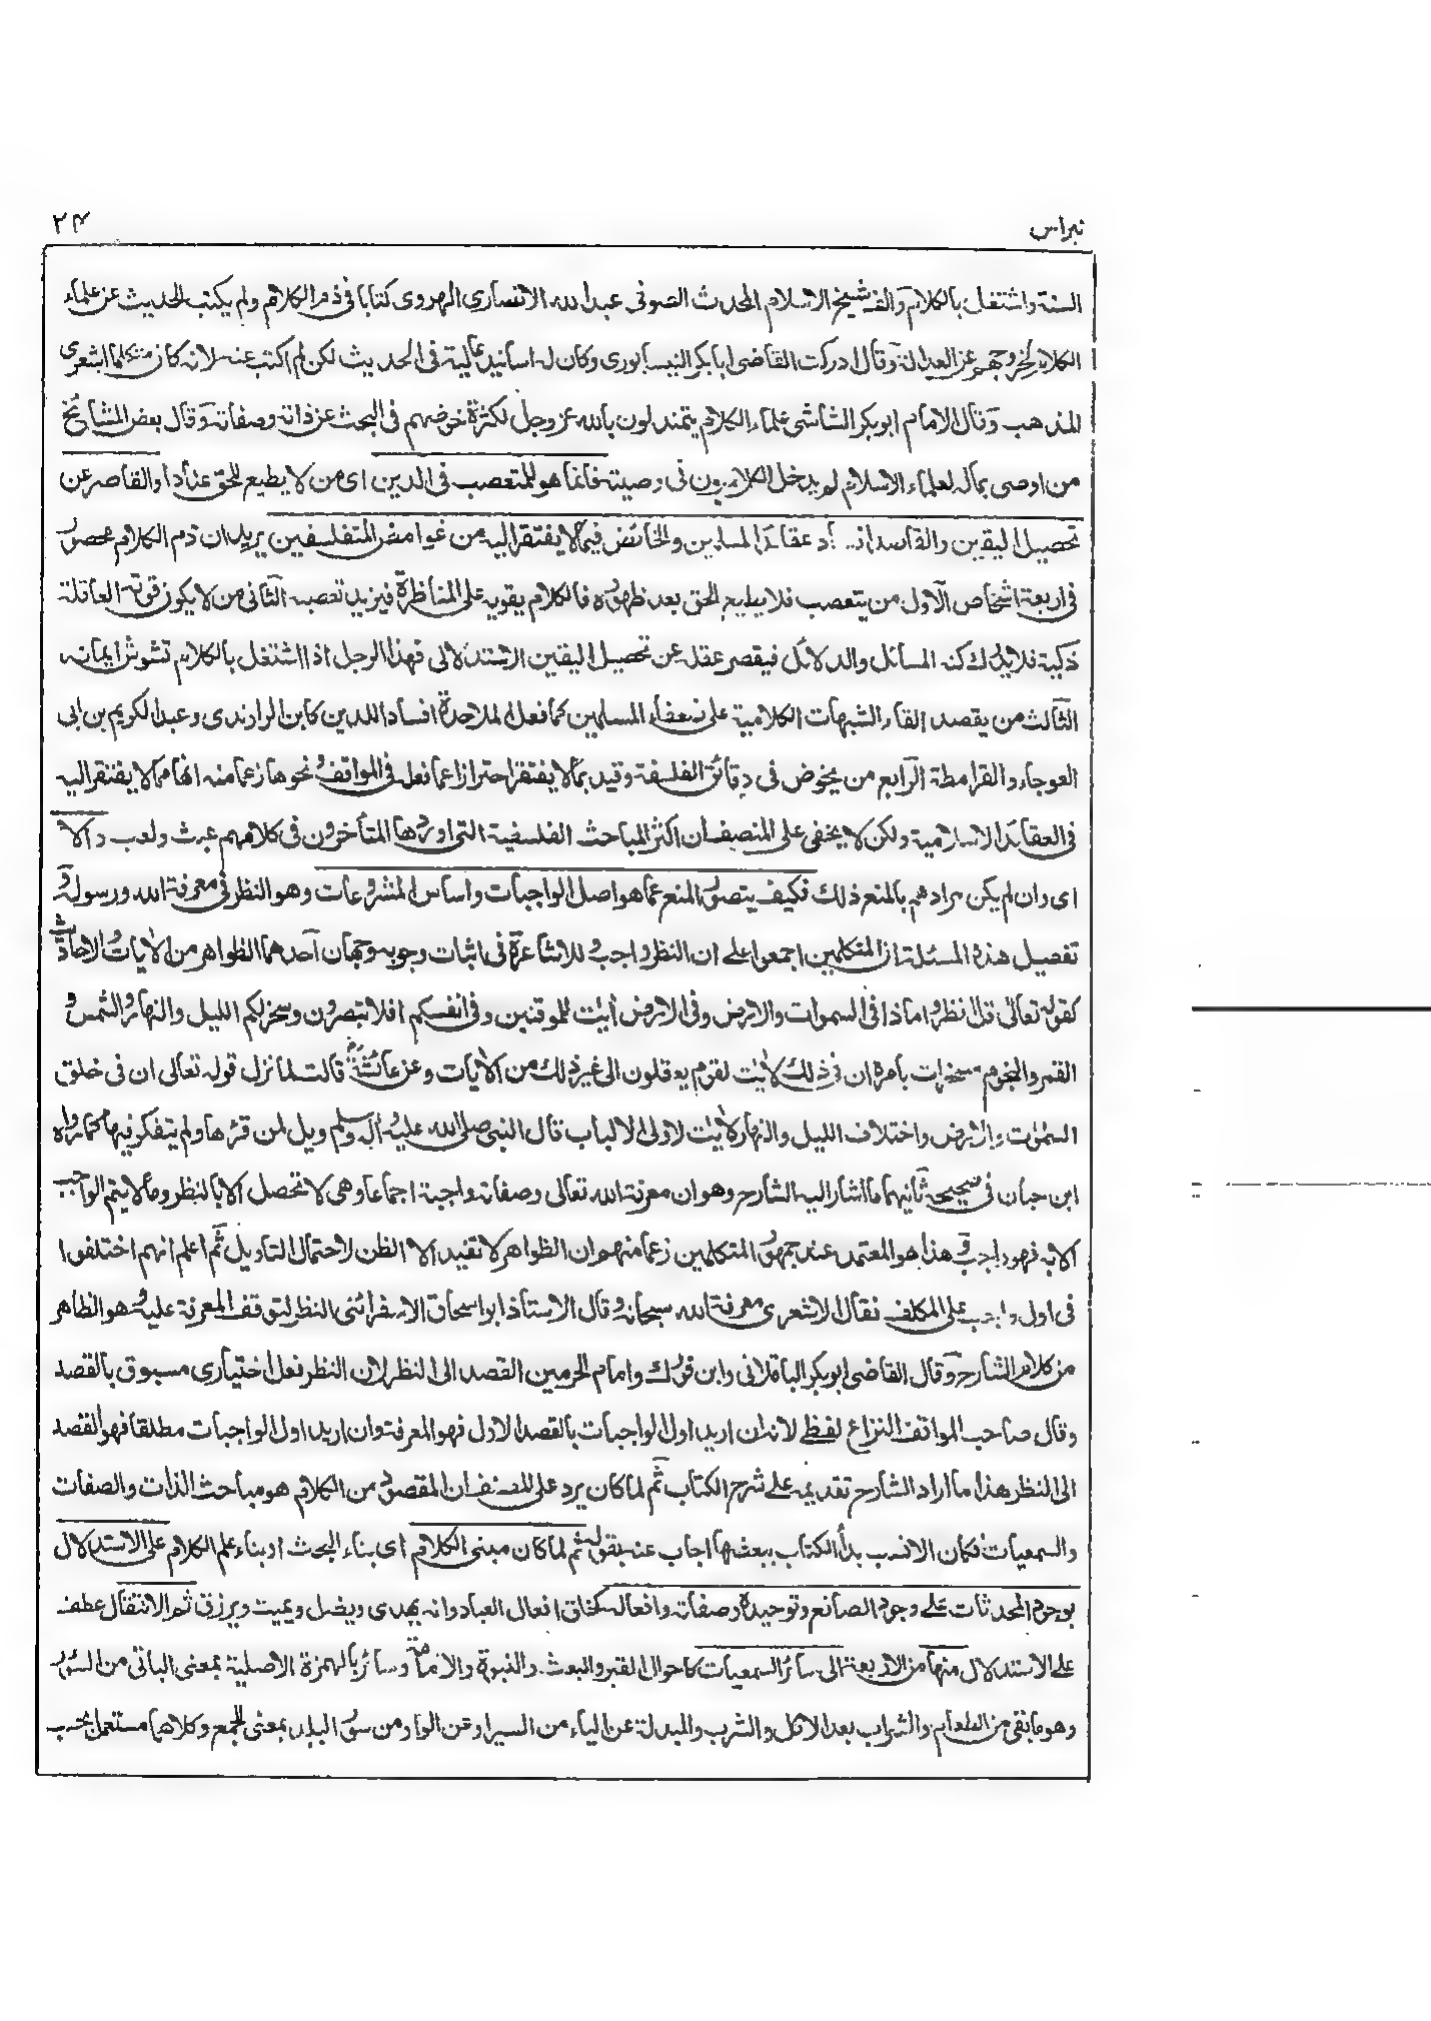 نبراس
۲۴
السنة واشتغل بالكلام والف شيخ الاسلام المحدث الصوفى عبدالله الانصارى الهروى كتابا فى ذم الكلام ولم يكتب الحديث عن علماء
الكلام لخروجهم عن العدالة وقال ادركت القاضى ابا بكر النيسابورى وكان له اسانيد عالية فى الحديث لكن لم اكتب عنه لانه كان متكلما اشعرى
المذهب وقال الامام ابوبكر الشاشى علماء الكلام يتمندلون بالله عز وجل لكثرة خوضهم فى البحث عن ذاته وصفاته وقال بعض المشائخ
من اوصى بماله لعلماء الاسلام لم يدخل الكلاميون فى وصيته فانما هو للمتعصب فى الدين اى من لا يطيع للحق عنادا والقاصر عن
تحصيل اليقين والقاصد افساد عقائد المسلمين والخائض فيما لا يفتقر اليه من غوامض المتفلسفين يريد ان ذم الكلام محصور
فى اربعة اشخاص الاول من يتعصب فلا يطيع الحق بعد ظهوره فالكلام يقويه على المناظرة فيزيد تعصبه الثانى من لا يكون قوته العاقلة
ذكية فلا يدرك كنه المسائل والدلائل فيقصر عقله عن تحصيل اليقين الاستدلالى فهذا الرجل اذا اشتغل بالكلام تشوش ايمانه
الثالث من يقصد القاء الشبهات الكلامية على ضعفاء المسلمين كما فعل الملاحدة افساد اللدين كابن الراوندى وعبد الكريم بن ابى
العوجاء والقرامطة الرابع من يخوض فى دقائق الفلسفة وقيد بما لا يفتقر احترازا عما نقل فى المواقف ونحوها زعما منه انها مما لا يفتقر اليه
فى العقائد الاسلامية ولكن لا يخفى على المنصف ان اكثر المباحث الفلسفية التى اوردها المتأخرون فى كلامهم عبث ولعب والا
اى وان لم يكن مرادهم بالمنع ذلك فكيف يتصور المنع عما هو اصل الواجبات واساس المشروعات وهو النظر فى معرفة الله ورسوله و
تفصيل هذه المسئلة ان المتكلمين اجمعوا على ان النظر واجب و للاشاعرة فى اثبات وجوبه وجهان احدهما الظواهر من الآيات والاحاديث
كقوله تعالى قل انظروا ماذا فى السموات والارض وفى الارض آيٰت للموقنين وفى انفسكم افلا تبصرون وسخر لكم الليل والنهار والشمس و
القمر والنجوم مسخرات بامره ان فى ذلك لآيٰت لقوم يعقلون الى غير ذلك من الآيات وعن عائشة قالت لما نزل قوله تعالى ان فى خلق
السمٰوٰت والارض واختلاف الليل والنهار لآيٰت لاولى الالباب قال النبى صلى الله عليه وآله وسلم ويل لمن قرءها ولم يتفكر فيها كما رواه
ابن حبان فى صحيحه ثانيهما ما اشار اليه الشارح وهو ان معرفة الله تعالى وصفاته واجبة اجماعا وهى لا تحصل الا بالنظر وما لا يتم الواجب
الا به فهو واجب و هذا هو المعتمد عند جمهور المتكلمين زعما منهم ان الظواهر لا تفيد الا الظن لاحتمال التاويل ثم اعلم انهم اختلفوا
فى اول واجب على المكلف فقال الاشعرى معرفة الله سبحانه وقال الاستاذ ابو اسحاق الاسفرائنى النظر لتوقف المعرفة عليه وهو الظاهر
من كلام الشارح وقال القاضى ابوبكر الباقلانى وابن فورك وامام الحرمين القصد الى النظر لان النظر فعل اختيارى مسبوق بالقصد
وقال صاحب المواقف النزاع لفظى لانه ان اريد اول الواجبات بالقصد الاول فهو المعرفة وان اريد اول الواجبات مطلقا فهو القصد
الى النظر هذا ما اراد الشارح تقديمه على شرح الكتاب ثم لما كان يرد على المصنف ان المقصود من الكلام هو مباحث الذات والصفات
والسمعيات فكان الانسب بدأ الكتاب ببعثها اجاب عنه بقوله ثم لما كان مبنى الكلام اى بناء البحث او بناء علم الكلام على الاستدلال
بوجود المحدثات على وجود الصانع وتوحيده وصفاته وافعاله كخلق افعال العباد وانه يهدى ويضل ويميت ويرزق ثم الانتقال عطف
على الاستدلال منها من الاربعة الى سائر السمعيات كاحوال القبر والبعث والنبوة والامامة وسائر بالهمزة الاصلية بمعنى الباقى من السؤر
وهو ما بقى من الطعام والشراب بعد الاكل والشرب والمبدلة عن الياء من السير او عن الواو من سور البلد بمعنى الجمع وكلاهما مستعمل بحسب